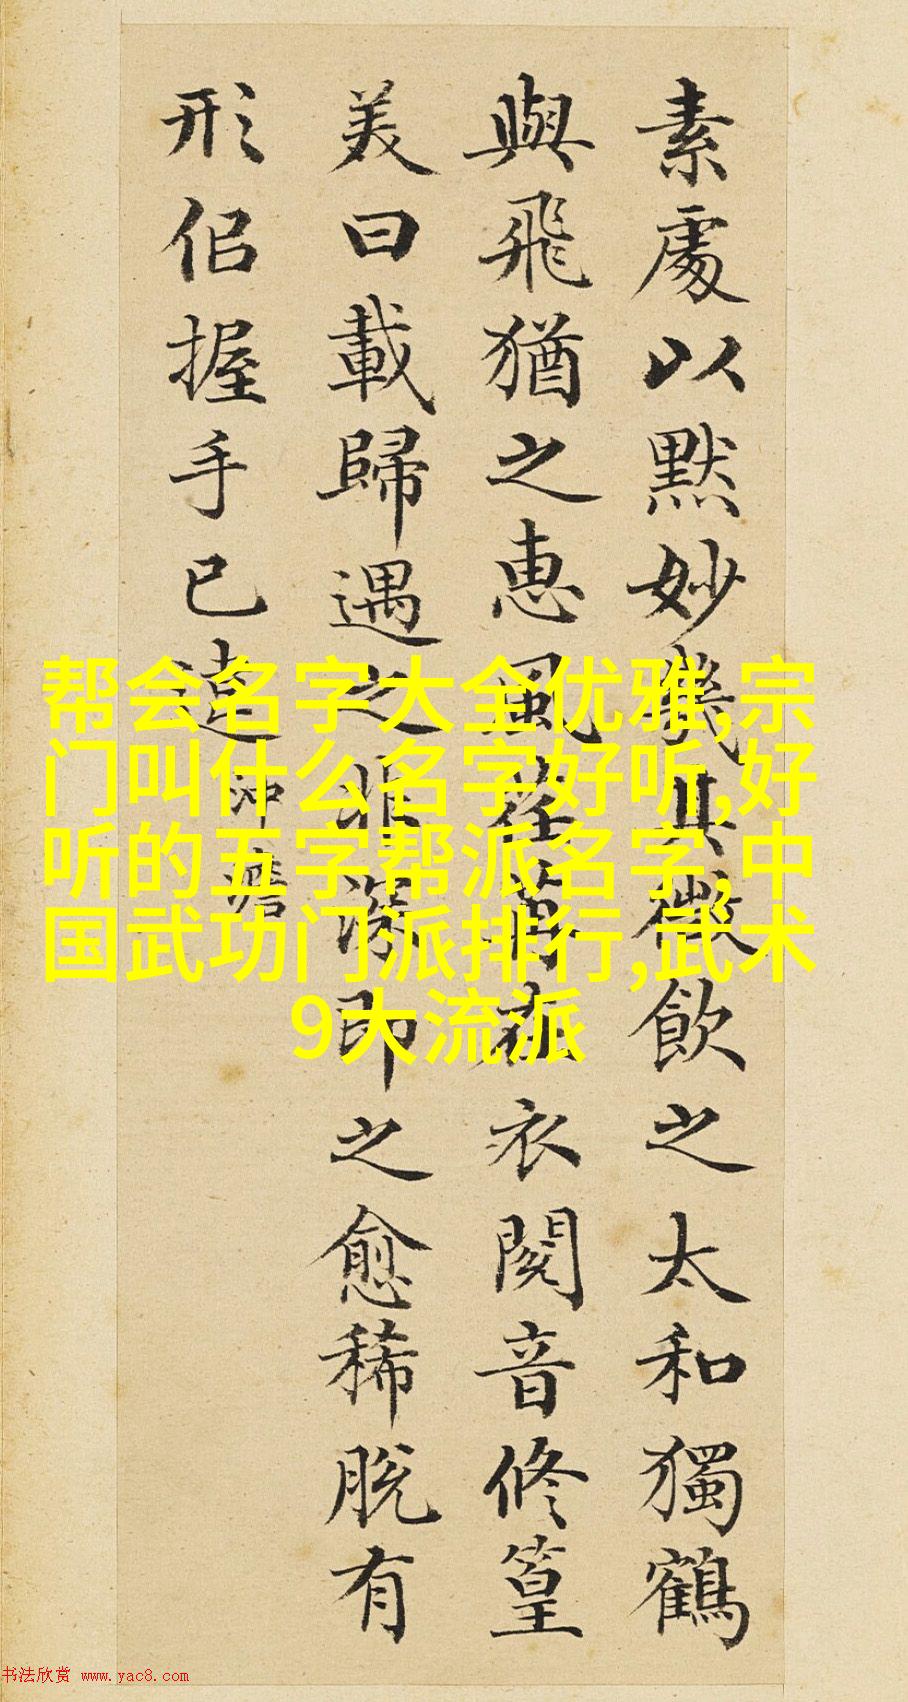 素處以默妙機其微飲之太和獨鶴
與飛猶之惠風荏苒在衣閱音修篁
美曰載歸遇之匪深即之愈稀脫有
形佀握手已違 沖澹
帮会名字大全优雅,宗
门叫什么名字好听,好
听的五字帮派名字,中
国武功门派排行,武术
9大流派
书法欣赏 www.yac8.com